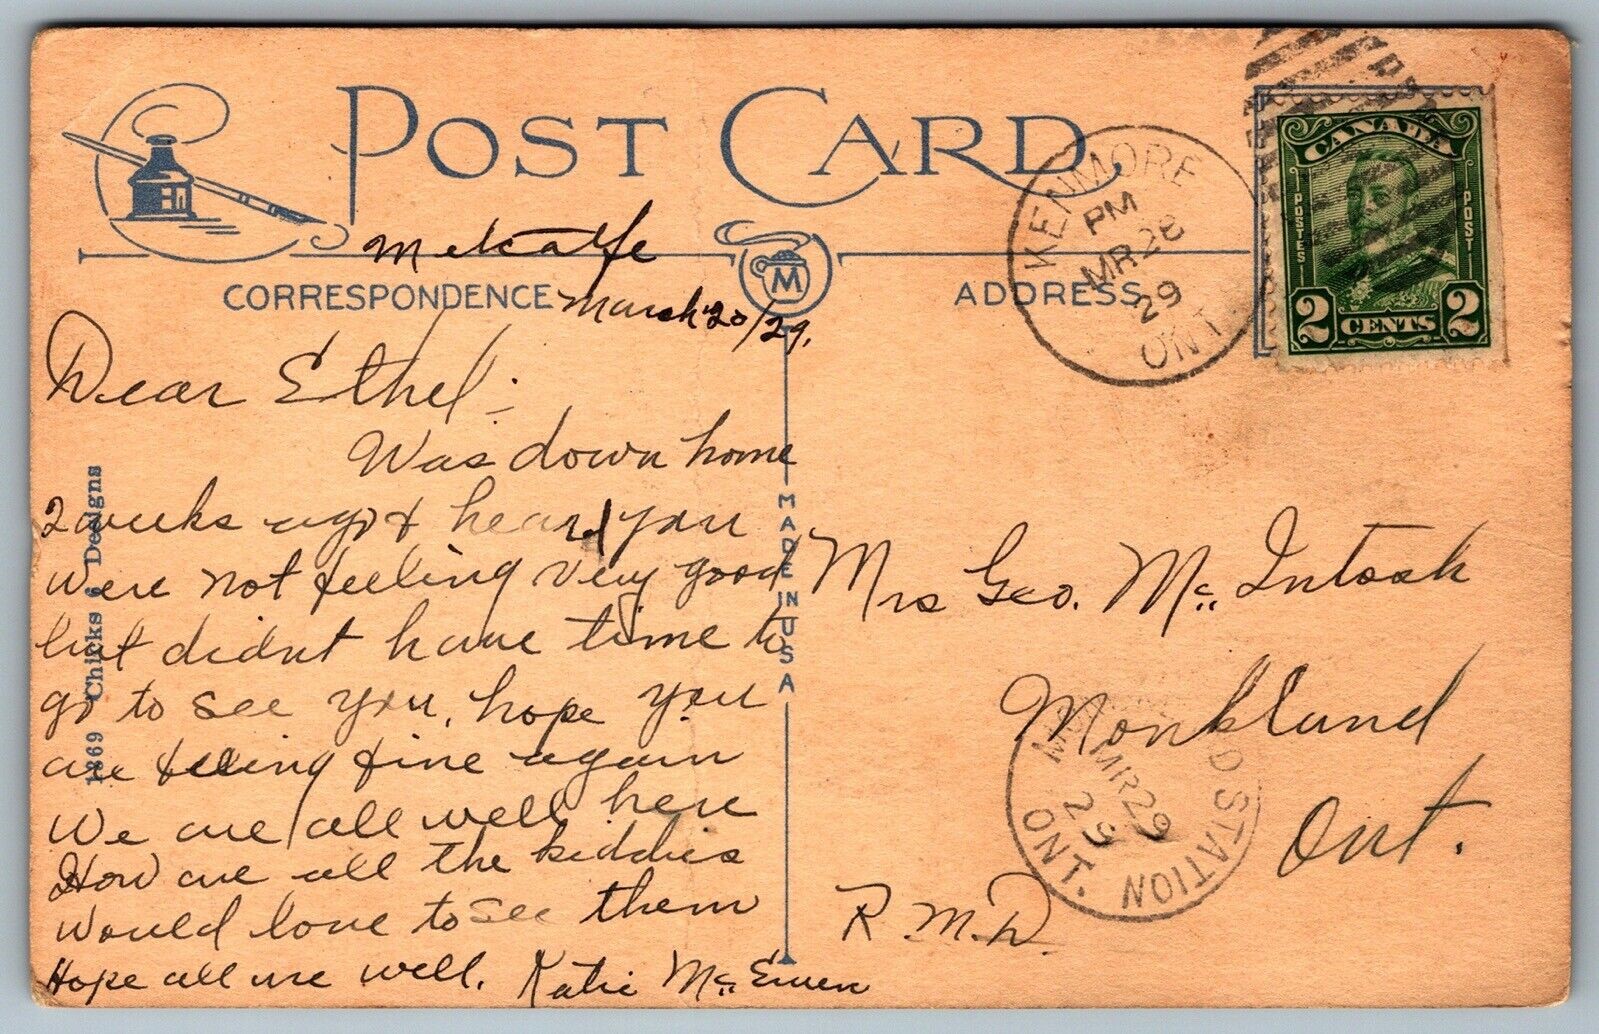 POST CARD
Metcalfe
CORRESPONDENCE
March 20/29.
Dear Ethel;-
Was down home
2 weeks ago & heard you
were not feeling very good
but didnt have time to
go to see you, hope you
are feeling fine again
We are all well here
How are all the kiddies
Would love to see them
Hope all are well. Katie McEwen
1869 Chicks 6 Designs
M
MADE IN USA
ADDRESS
KENMORE
PM
MR 28
29
ONT.
CANADA
POSTES
POSTES
2 CENTS 2
Mrs Geo. McIntosh
Monkland
Ont.
R.M.D.
MR 29
29
STATION
ONT.